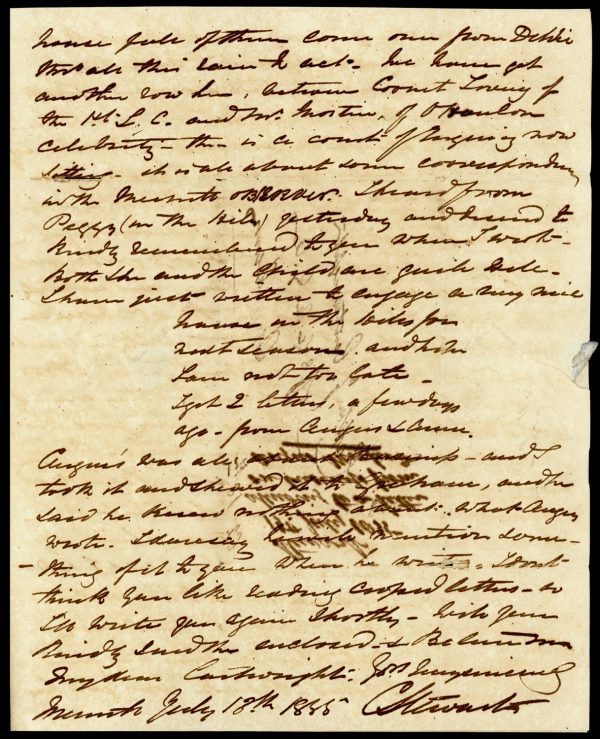 house full of them come over from Delhi
thro all this rain & c. We have got
another row here, between Cornet Loving of
the 1st L. C. and Mr. of
celebrity - there is a court of Inquiry now
sitting - it is all about some correspondence
in the Meerut Observer. I heard from
Peggy (in the Hills) yesterday and desired to
kindly remembered to you when I wrote -
both she and the Child are quite well -
I have just written to engage a very nice
house in the hills for
next season and hope
I am not too late -
I got 2 letters, a few days
ago - from Angus & Anne.
Angus's was all - and I
took it and shewed it to and he
said he knew nothing about what Angus
wrote. I daresay he will mention some-
thing of it to you when he writes. I don't
think you like reading crossed letters - so
I'll write you again shortly - will you
kindly send the enclosed - & Believe me
My dear Cartwright Yrs very sincerely
Meerut July 18th 1835 C Stewart